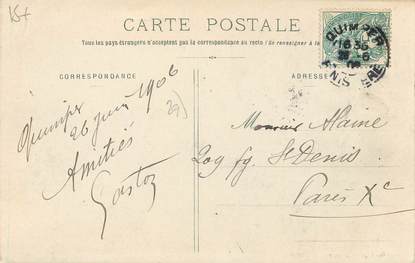 15+
CARTE POSTALE
Tous les pays étrangers n'acceptent pas la correspondance au recto (se renseigner à la
CORRESPONDANCE
ADRESSE
QUIMPER
16 35
26 -6
06
FINISTERE
29)
Quimper
26 juin 1906
Amitiés
Gaston
Monsieur Alaine
209 fg St Denis
Paris Xe